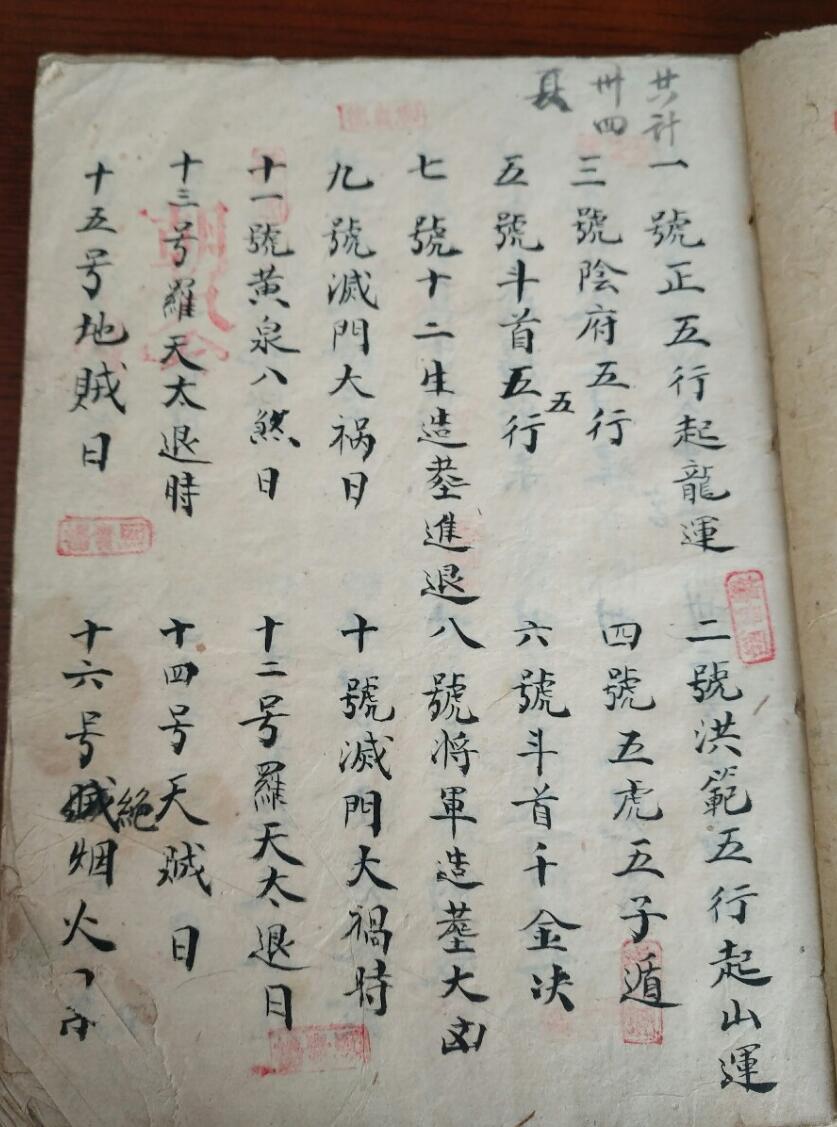 共计
卅四
頁
一號正五行起龍運
二號洪範五行起山運
三號陰府五行
四號五虎五子遁
五號斗首五行
五
六號斗首千金决
七號十二生造塟進退
八號将軍造塟大凶
九號滅門大祸日
十號滅門大禍時
十一號黄泉八煞日
十二号羅天太退日
十三号羅天太退時
十四号天賊日
十五号地賊日
十六号絶烟火